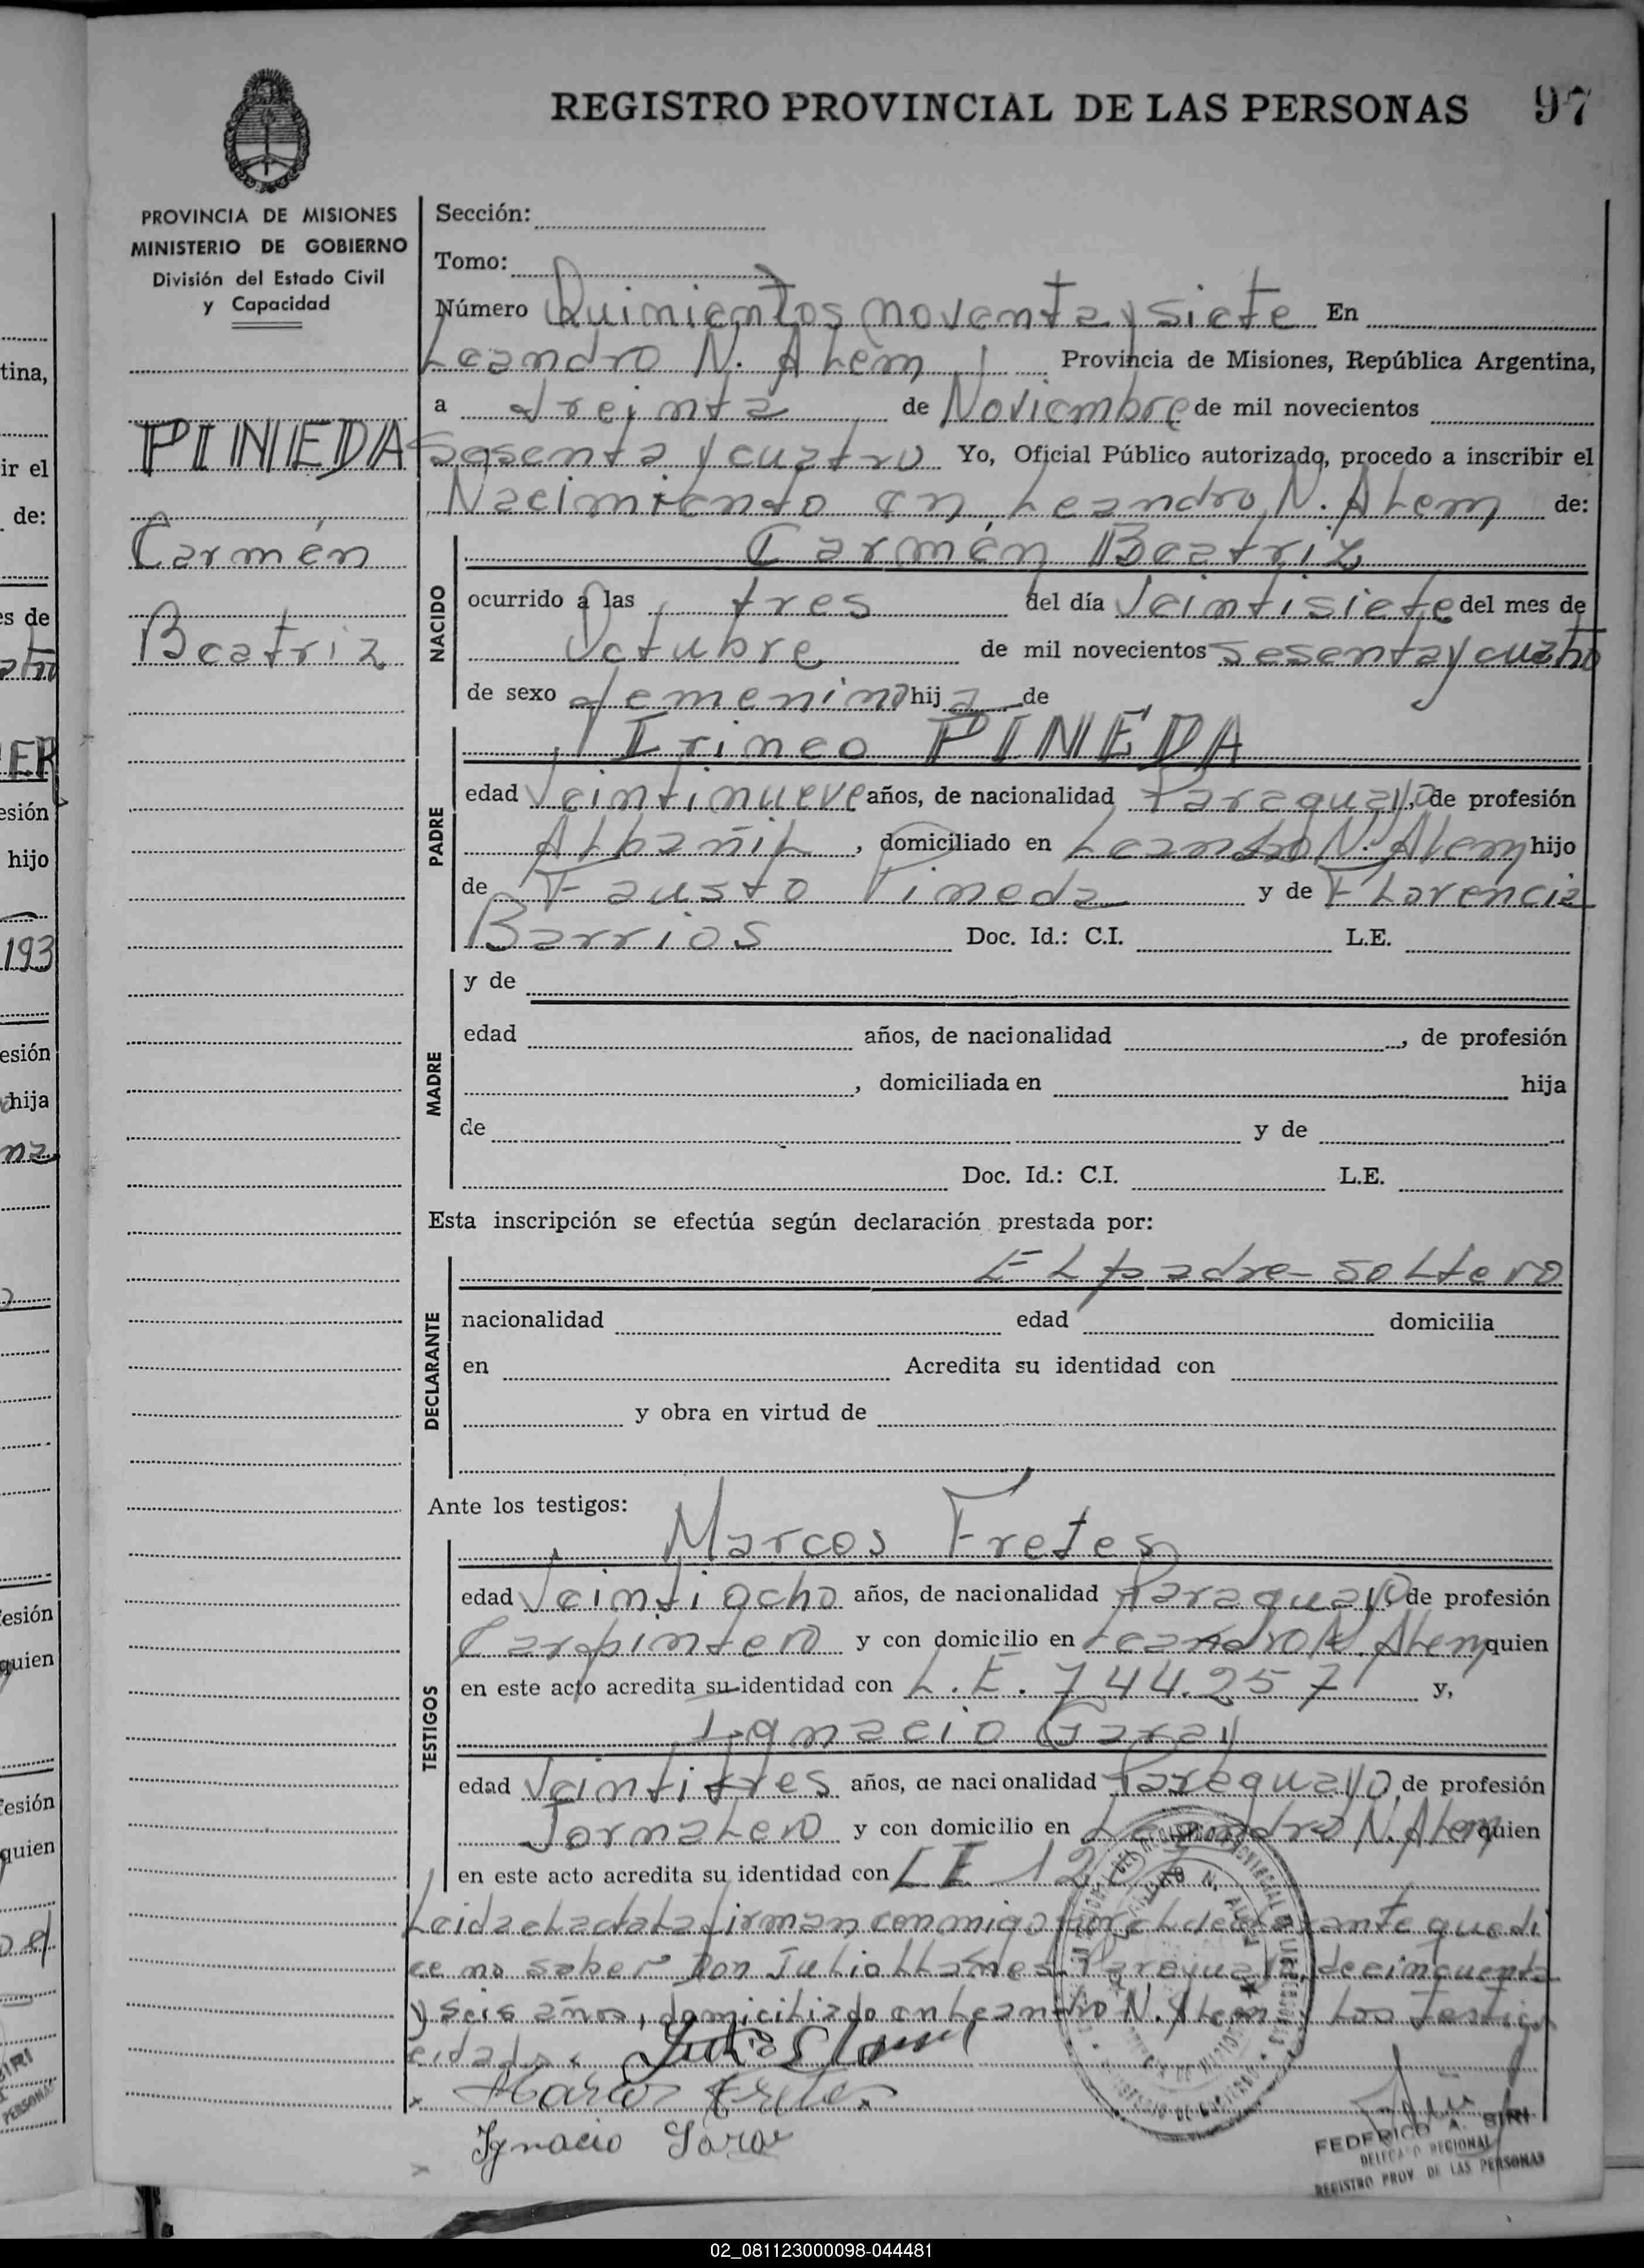 REGISTRO PROVINCIAL DE LAS PERSONAS 97
PROVINCIA DE MISIONES
MINISTERIO DE GOBIERNO
División del Estado Civil
y Capacidad
PINEDA
Carmén
Beatriz
Sección:
Tomo:
Número Quinientos noventa y siete En
Leandro N. Alem Provincia de Misiones, República Argentina,
a treinta de Noviembre de mil novecientos
sesenta y cuatro Yo, Oficial Público autorizado, procedo a inscribir el
Nacimiento en Leandro N. Alem de:
NACIDO
Carmén Beatriz
ocurrido a las tres del día Veintisiete del mes de
Octubre de mil novecientos sesenta y cuatro
de sexo femenino hija de
PADRE
Irineo PINEDA
edad Veintinueve años, de nacionalidad Paraguayo, de profesión
Albañil, domiciliado en Leandro N. Alem hijo
de Fausto Pineda y de Florencia
Barrios Doc. Id.: C.I. L.E.
MADRE
y de
edad años, de nacionalidad , de profesión
, domiciliada en hija
de y de
Doc. Id.: C.I. L.E.
Esta inscripción se efectúa según declaración prestada por:
DECLARANTE
El padre - soltero
nacionalidad edad domicilia
en Acredita su identidad con
y obra en virtud de
Ante los testigos:
TESTIGOS
Marcos Fretes
edad Veintiocho años, de nacionalidad Paraguayo, de profesión
Carpintero y con domicilio en Leandro N. Alem quien
en este acto acredita su identidad con L.E. 744.257 y,
Ignacio Garay
edad Veintitres años, de nacionalidad Paraguayo, de profesión
Jornalero y con domicilio en Leandro N. Alem quien
en este acto acredita su identidad con LE 12
Leida el acta la firman conmigo por el declarante que di
ce no saber Don Julio Paraguayo, de cincuenta
y seis años, domiciliado en Leandro N. Alem y los testigos
citados.
Marcos Fretes
Ignacio Garay
FEDERICO A. SIRI
DELEGADO REGIONAL
REGISTRO PROV. DE LAS PERSONAS
tina,
ir el
de:
es de
esión
hijo
193
esión
hija
esión
quien
esión
quien
02_081123000098-044481